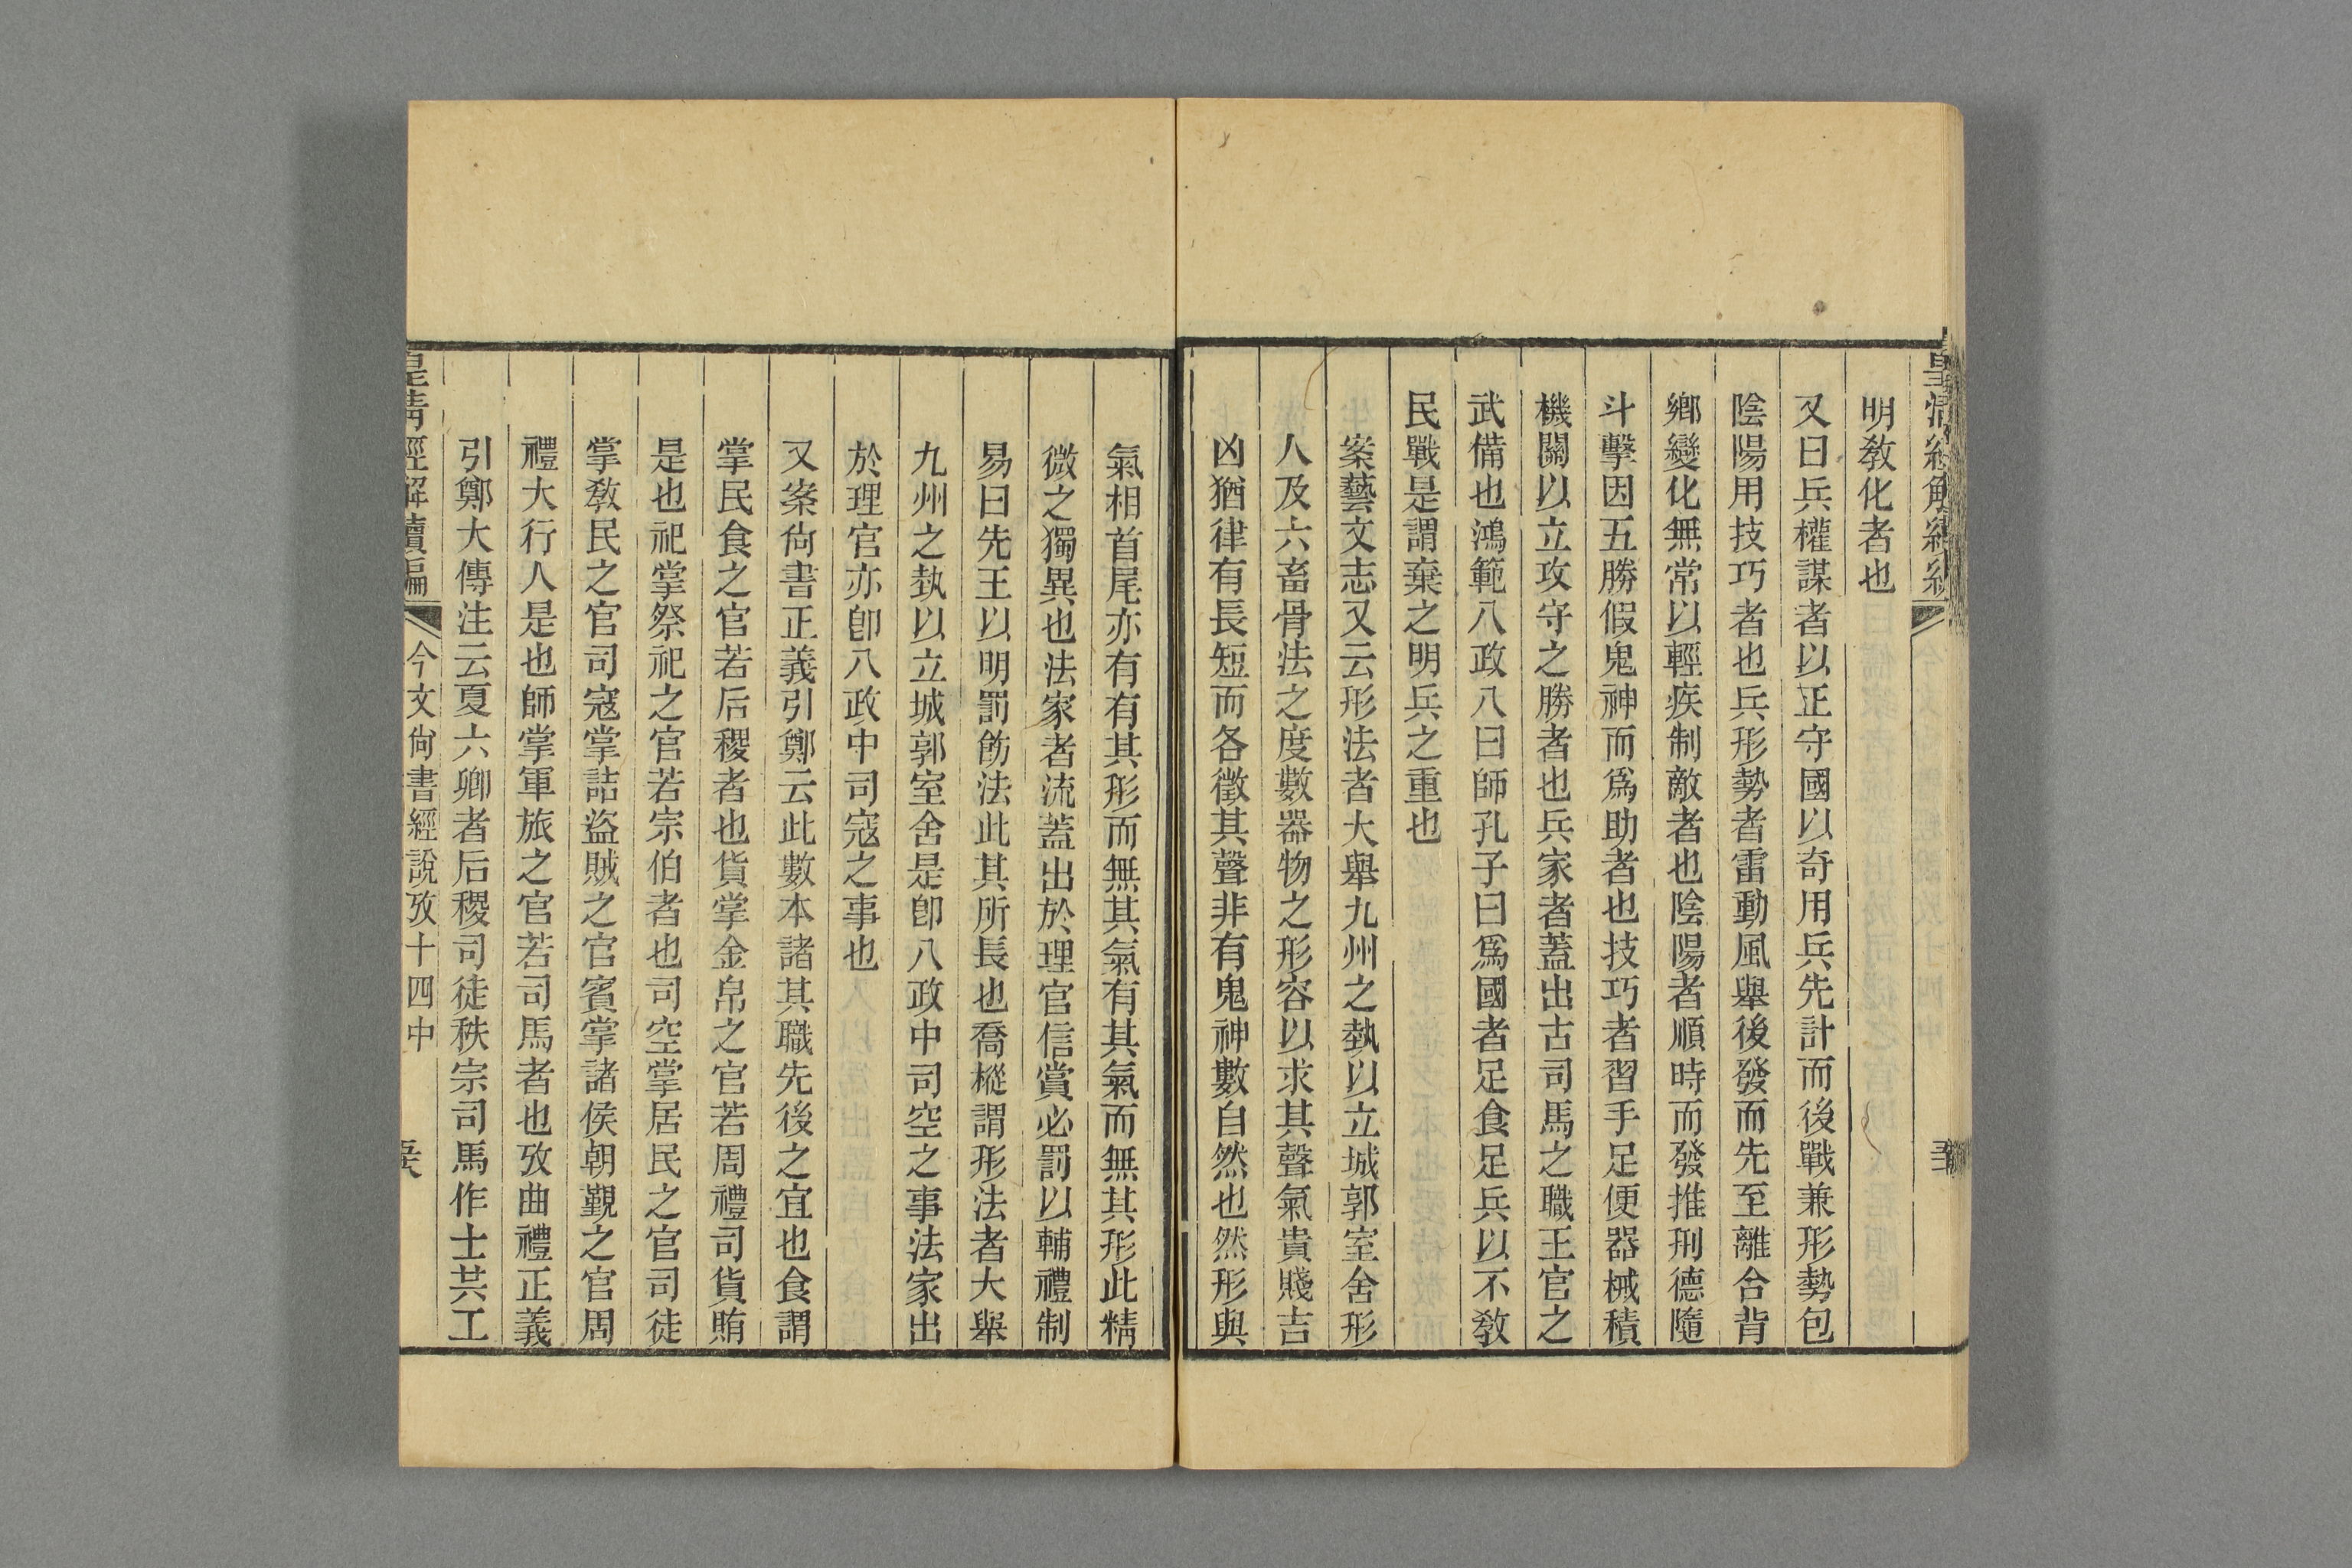 明敎化者也
又曰兵權謀者以正守國以奇用兵先計而後戰兼形勢包
陰陽用技巧者也兵形勢者雷動風舉後發而先至離合背
鄉變化無常以輕疾制敵者也陰陽者順時而發推刑德隨
斗擊因五勝假鬼神而爲助者也技巧者習手足便器械積
機關以立攻守之勝者也兵家者蓋出古司馬之職王官之
武備也鴻範八政八曰師孔子曰爲國者足食足兵以不敎
民戰是謂棄之明兵之重也
案藝文志又云形法者大舉九州之埶以立城郭室舍形
人及六畜骨法之度數器物之形容以求其聲氣貴賤吉
凶猶律有長短而各徵其聲非有鬼神數自然也然形與
氣相首尾亦有有其形而無其氣有其氣而無其形此精
微之獨異也法家者流蓋出於理官信賞必罰以輔禮制
易曰先王以明罰飭法此其所長也喬樅謂形法者大舉
九州之埶以立城郭室舍是卽八政中司空之事法家出
於理官亦卽八政中司寇之事也
又案尙書正義引鄭云此數本諸其職先後之宜也食謂
掌民食之官若后稷者也貨掌金帛之官若周禮司貨賄
是也祀掌祭祀之官若宗伯者也司空掌居民之官司徒
掌敎民之官司寇掌詰盜賊之官賓掌諸侯朝覲之官周
禮大行人是也師掌軍旅之官若司馬者也攷曲禮正義
引鄭大傳注云夏六卿者后稷司徒秩宗司馬作士共工
皇清經解續編
今文尙書經說攷十四中